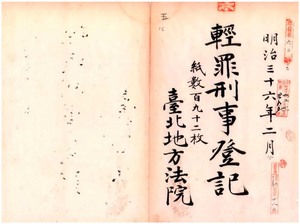 明治三十六年二月
輕罪刑事登記
紙数百九十二枚
臺北地方法院
五